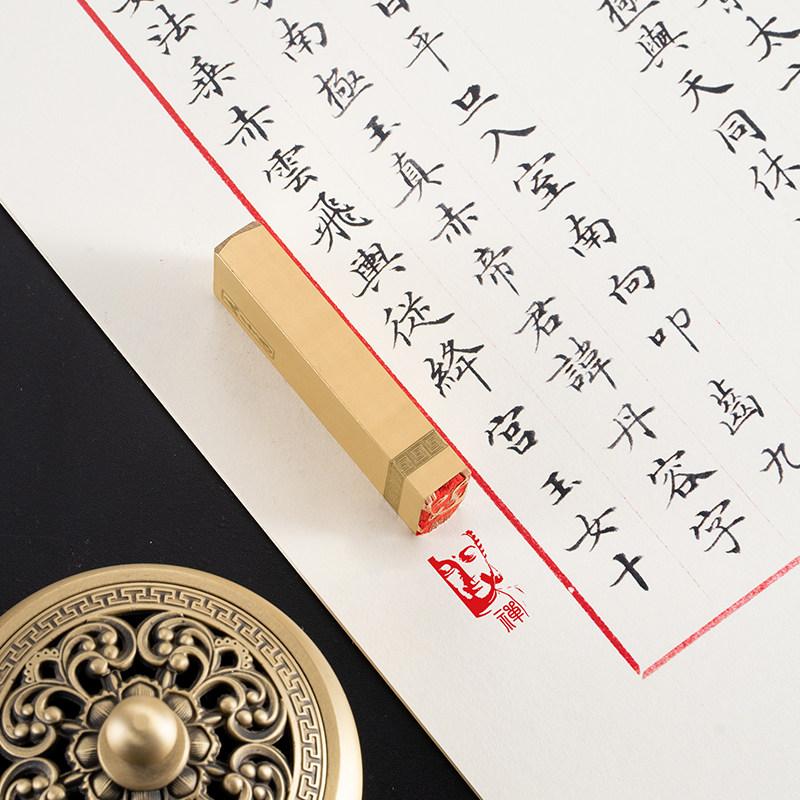 太
極輿天同休
日平旦入室南向叩齒九
南極玉真赤帝君諱丹容字
法乘赤雲飛輿從絳宮玉女十
禪